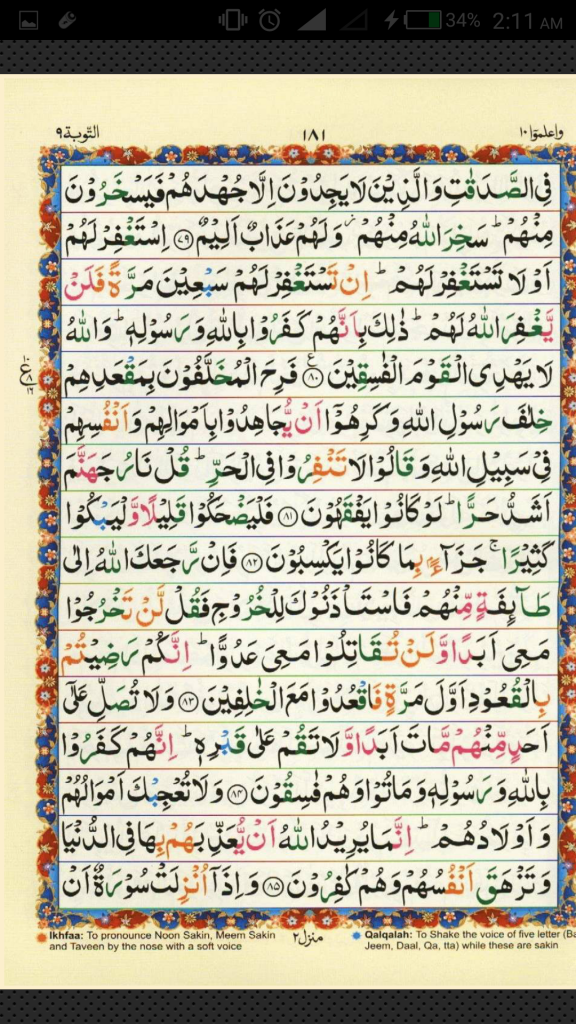 34% 2:11 AM
التوبة ٩ ١٨١ واعلموٓا ١٠
فِی الصَّدَقٰتِ وَالَّذِیْنَ لَا یَجِدُوْنَ اِلَّا جُهْدَهُمْ فَیَسْخَرُوْنَ
مِنْهُمْ ؕ سَخِرَ اللّٰهُ مِنْهُمْ ؗ وَلَهُمْ عَذَابٌ اَلِیْمٌ ﴿۷۹﴾ اِسْتَغْفِرْ لَهُمْ
اَوْ لَا تَسْتَغْفِرْ لَهُمْ ؕ اِنْ تَسْتَغْفِرْ لَهُمْ سَبْعِیْنَ مَرَّةً فَلَنْ
یَّغْفِرَ اللّٰهُ لَهُمْ ؕ ذٰلِكَ بِاَنَّهُمْ كَفَرُوْا بِاللّٰهِ وَرَسُوْلِهٖ ؕ وَاللّٰهُ
لَا یَهْدِی الْقَوْمَ الْفٰسِقِیْنَ ﴿۸۰﴾ ع فَرِحَ الْمُخَلَّفُوْنَ بِمَقْعَدِهِمْ
خِلٰفَ رَسُوْلِ اللّٰهِ وَكَرِهُوْۤا اَنْ یُّجَاهِدُوْا بِاَمْوَالِهِمْ وَاَنْفُسِهِمْ
فِیْ سَبِیْلِ اللّٰهِ وَقَالُوْا لَا تَنْفِرُوْا فِی الْحَرِّ ؕ قُلْ نَارُ جَهَنَّمَ
اَشَدُّ حَرًّا ؕ لَوْ كَانُوْا یَفْقَهُوْنَ ﴿۸۱﴾ فَلْیَضْحَكُوْا قَلِیْلًا وَّلْیَبْكُوْا
كَثِیْرًا ۚ جَزَآءًۢ بِمَا كَانُوْا یَكْسِبُوْنَ ﴿۸۲﴾ فَاِنْ رَّجَعَكَ اللّٰهُ اِلٰی
طَآىِٕفَةٍ مِّنْهُمْ فَاسْتَاْذَنُوْكَ لِلْخُرُوْجِ فَقُلْ لَّنْ تَخْرُجُوْا
مَعِیَ اَبَدًا وَّلَنْ تُقَاتِلُوْا مَعِیَ عَدُوًّا ؕ اِنَّكُمْ رَضِیْتُمْ
بِالْقُعُوْدِ اَوَّلَ مَرَّةٍ فَاقْعُدُوْا مَعَ الْخٰلِفِیْنَ ﴿۸۳﴾ وَلَا تُصَلِّ عَلٰۤی
اَحَدٍ مِّنْهُمْ مَّاتَ اَبَدًا وَّلَا تَقُمْ عَلٰی قَبْرِهٖ ؕ اِنَّهُمْ كَفَرُوْا
بِاللّٰهِ وَرَسُوْلِهٖ وَمَاتُوْا وَهُمْ فٰسِقُوْنَ ﴿۸۴﴾ وَلَا تُعْجِبْكَ اَمْوَالُهُمْ
وَاَوْلَادُهُمْ ؕ اِنَّمَا یُرِیْدُ اللّٰهُ اَنْ یُّعَذِّبَهُمْ بِهَا فِی الدُّنْیَا
وَتَزْهَقَ اَنْفُسُهُمْ وَهُمْ كٰفِرُوْنَ ﴿۸۵﴾ وَاِذَاۤ اُنْزِلَتْ سُوْرَةٌ اَنْ
منزل ٢
Ikhfaa: To pronounce Noon Sakin, Meem Sakin
and Taveen by the nose with a soft voice
Qalqalah: To Shake the voice of five letter (Ba
Jeem, Daal, Qa, tta) while these are sakin